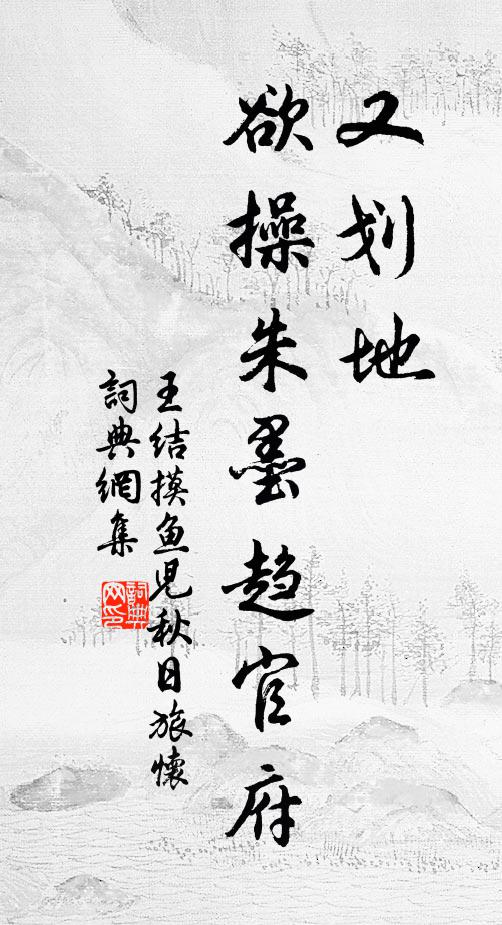 又划地
欲操朱墨趋官府
王结摸鱼儿秋日旅懷
詞典網集
詞典
网印